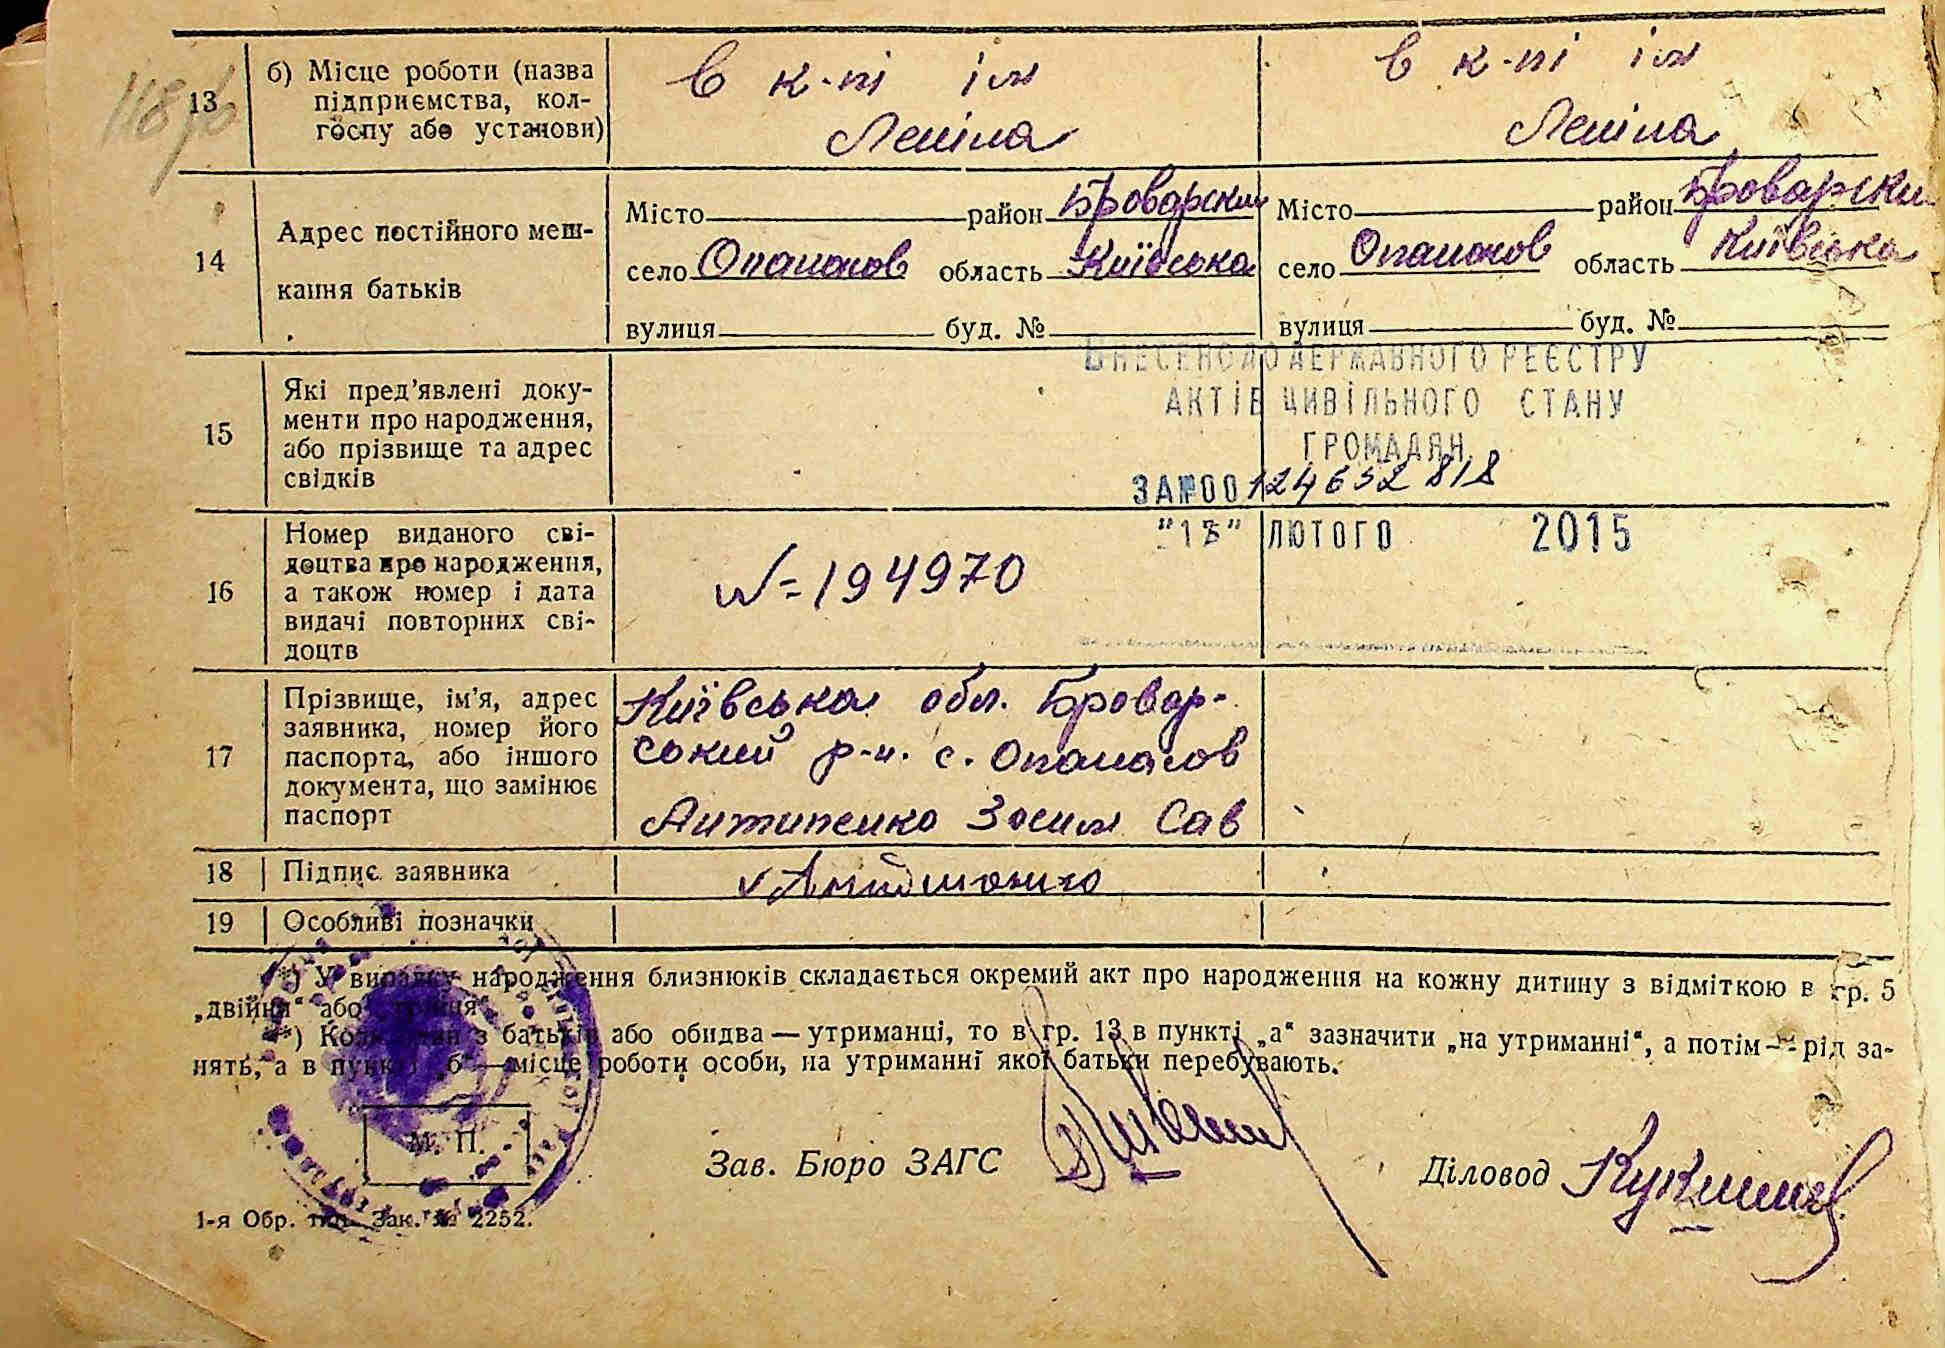 118 зв
13 б) Місце роботи (назва підприємства, колгоспу або установи)
в к-пі ім Леніна
в к-пі ім Леніна
14 Адрес постійного меш-
кання батьків
Місто район Броварски
село Опанасов область Київська
вулиця буд. №
Місто район Броварски
село Опанасов область Київська
вулиця буд. №
15 Які пред’явлені доку-
менти про народження,
або прізвище та адрес
свідків
ВНЕСЕНО ДО ДЕРЖАВНОГО РЕЄСТРУ
АКТІВ ЦИВІЛЬНОГО СТАНУ
ГРОМАДЯН
ЗА №00124652818
ЛЮТОГО 2015
16 Номер виданого сві-
доцтва про народження,
а також номер і дата
видачі повторних сві-
доцтв
№=194970
17 Прізвище, ім’я, адрес
заявника, номер його
паспорта, або іншого
документа, що замінює
паспорт
Київська обл. Бровар-
ський р-н. с. Опанасов
Антипенко Зосим Сав
18 Підпис заявника
19 Особливі позначки
*) У випадку народження близнюків складається окремий акт про народження на кожну дитину з відміткою в гр. 5
„двійня“ або „трійня“.
**) Коли один з батьків або обидва — утриманці, то в гр. 13 в пункті „а“ зазначити „на утриманні“, а потім — рід за-
нять, а в пункті „б“ — місце роботи особи, на утриманні якої батьки перебувають.
М. П.
Зав. Бюро ЗАГС
Діловод
1-я Обр. тип. Зак. № 2252.